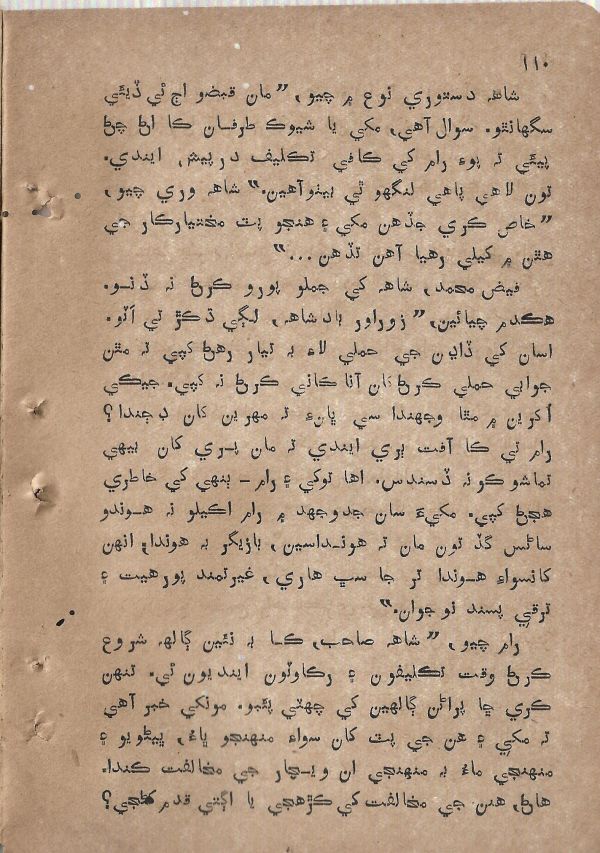 ١١٠
شاهہ دستوري نوع ۾ چيو، ”مان قبضو اڄ ئي ڏيئي
سگهانٿو. سوال آهي، مکي يا شيوڪ طرفان ڪا اڻ چڻ
پيئي تہ پوءِ رام کي ڪافي تڪليف درپيش ايندي.
تون لاهي پاهي لنگهو ٿي بيٺو آهين.“ شاهہ وري چيو،
”خاص ڪري جڏهن مکي ۽ هنجو پٽ مختيارڪار جي
هٿن ۾ کيلي رهيا آهن تڏهن...“
فيض محمد، شاهہ کي جملو پورو ڪرڻ نہ ڏنو.
هڪدم چيائين، ”زوراور بادشاهہ، لڳي ڌڪڙ تي آڻو.
اسان کي ڏاڍن جي حملي لاءِ بہ تيار رهڻ کپي تہ مٿن
جوابي حملي ڪرڻ کان آنا ڪاني ڪرڻ نہ کپي. جيڪي
اُکرين ۾ مٿا وجهندا سي ڀانءِ تہ مهرين کان ڊڄندا؟
رام تي ڪا آفت بري ايندي تہ مان پري کان بيهي
تماشو ڪونہ ڏسندس. اها توکي ۽ رام - ٻنهي کي خاطري
هجڻ کپي. مکيءَ سان جدوجهد ۾ رام اڪيلو نہ هوندو
ساڻس گڏ تون مان تہ هونداسين، بازيگر بہ هوندا، انهن
کانسواءِ هوندا ٿر جا سڀ هاري، غيرتمند پورهيت ۽
ترقي پسند نوجوان.“
رام چيو، ”شاهہ صاحب، ڪا بہ نئين ڳالهہ شروع
ڪرڻ وقت تڪليفون ۽ رڪاوٽون اينديون ئي. تنهن
ڪري ڇا پراڻن ڳالهين کي چهٽي پئبو. مونکي خبر آهي
تہ مکي ۽ هن جي پٽ کان سواءِ منهنجو ڀاءُ، ڀيڻويو ۽
منهنجي ماءُ بہ منهنجي ان ويچار جي مخالفت ڪندا.
هاڻ، هنن جي مخالفت کي ڪڙهجي يا اڳتي قدم کڻجي؟